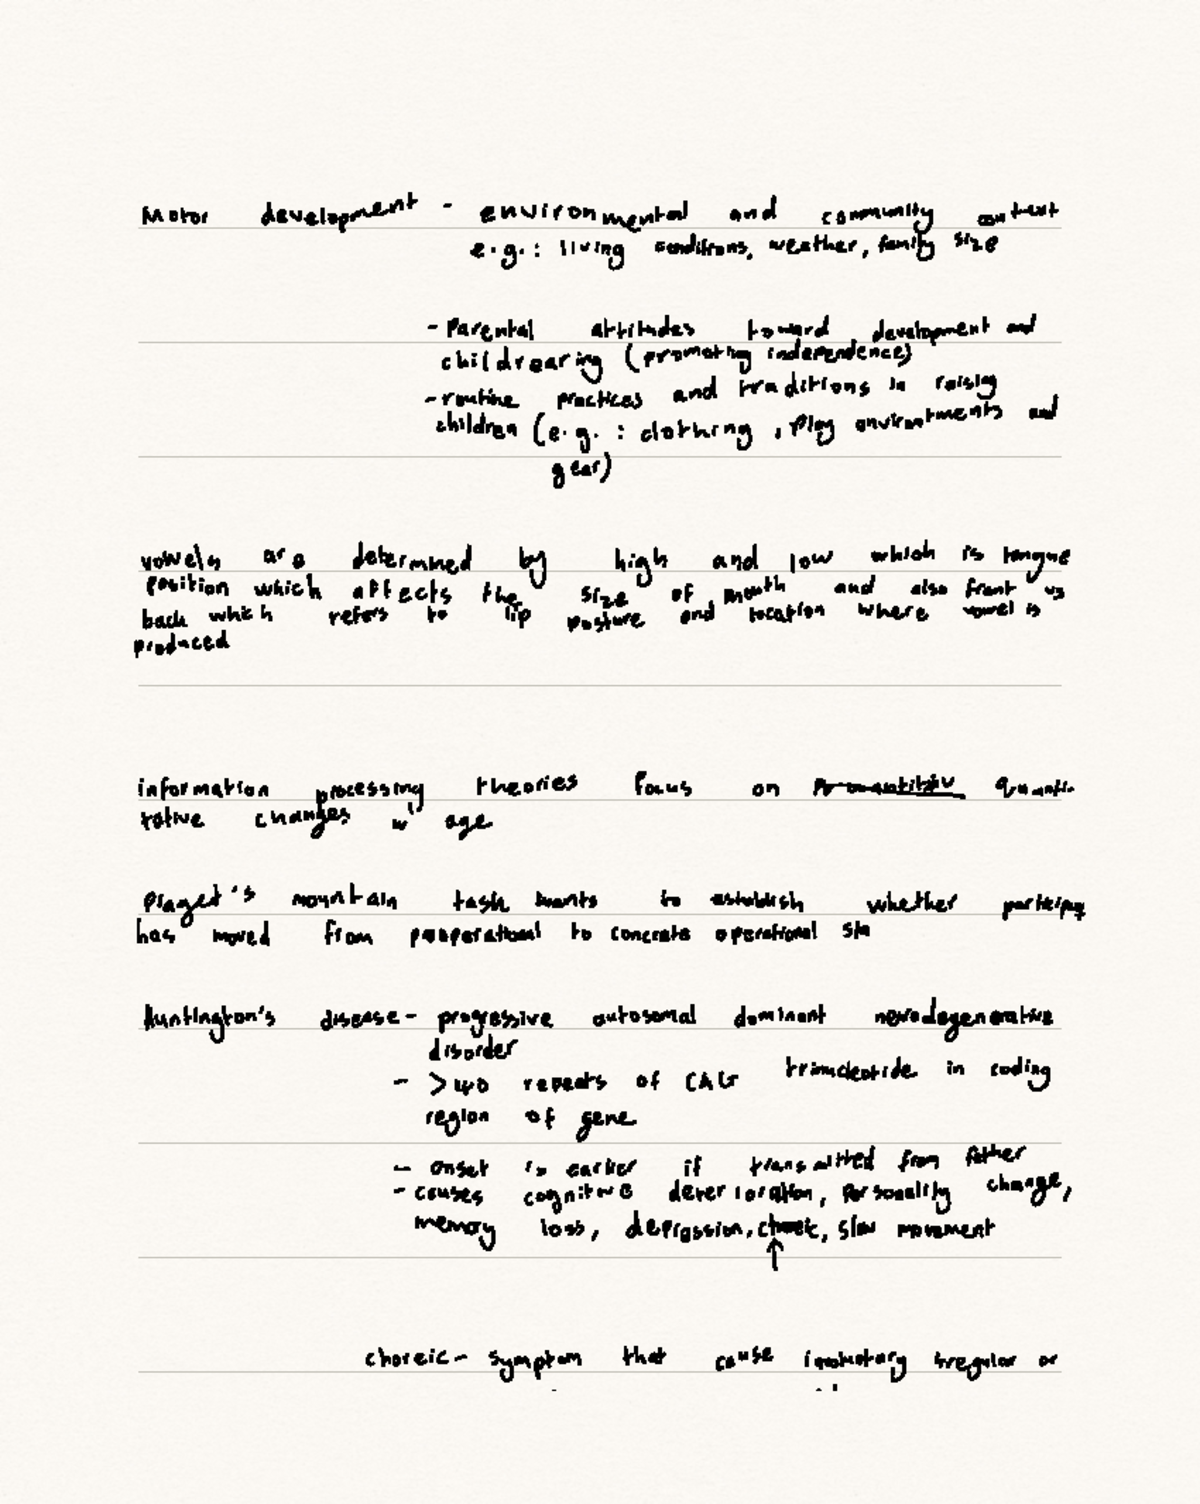 Motor development - environmental and community context
e.g.: living conditions, weather, family size
- Parental attitudes toward development and
childrearing (promoting independence)
- routine practices and traditions in raising
children (e.g.: clothing, play environments and
gear)
vowels are determined by high and low which is tongue
position which affects the size of mouth and also front vs
back which refers to lip posture and location where vowel is
produced
information processing theories focus on quanti-
tative changes w' age
Piaget's mountain task wants to establish whether
has moved from to concrete operational sta
Huntington's disease - progressive autosomal dominant
disorder
- >40 repeats of CAG trinucleotide in coding
region of gene
- onset is earlier if transmitted from father
- causes cognitive deterioration, personality change,
memory loss, depression, slow movement
↑
choreic - symptom that cause irregular or